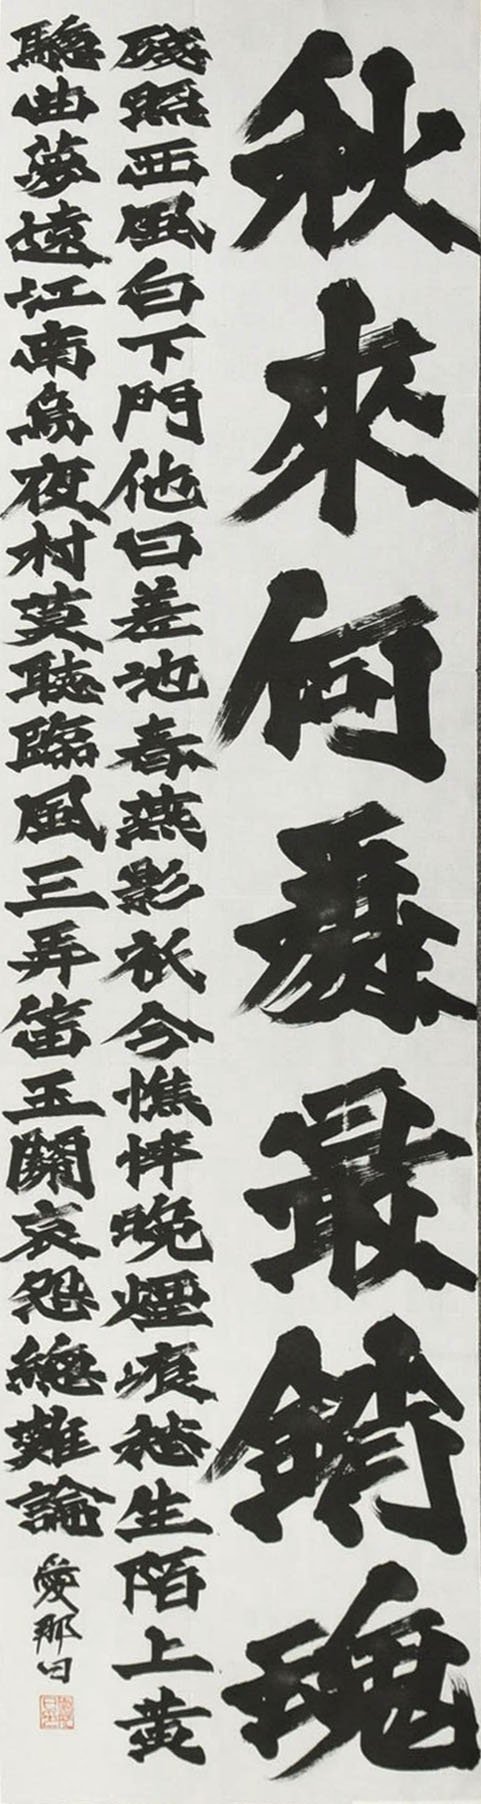 秋來何處最銷魂
殘照西風白下門他日差池春燕影祇今憔悴晚煙痕愁生陌上黃
驄曲夢遠江南烏夜村莫聽臨風三弄笛玉關哀怨總難論 愛那